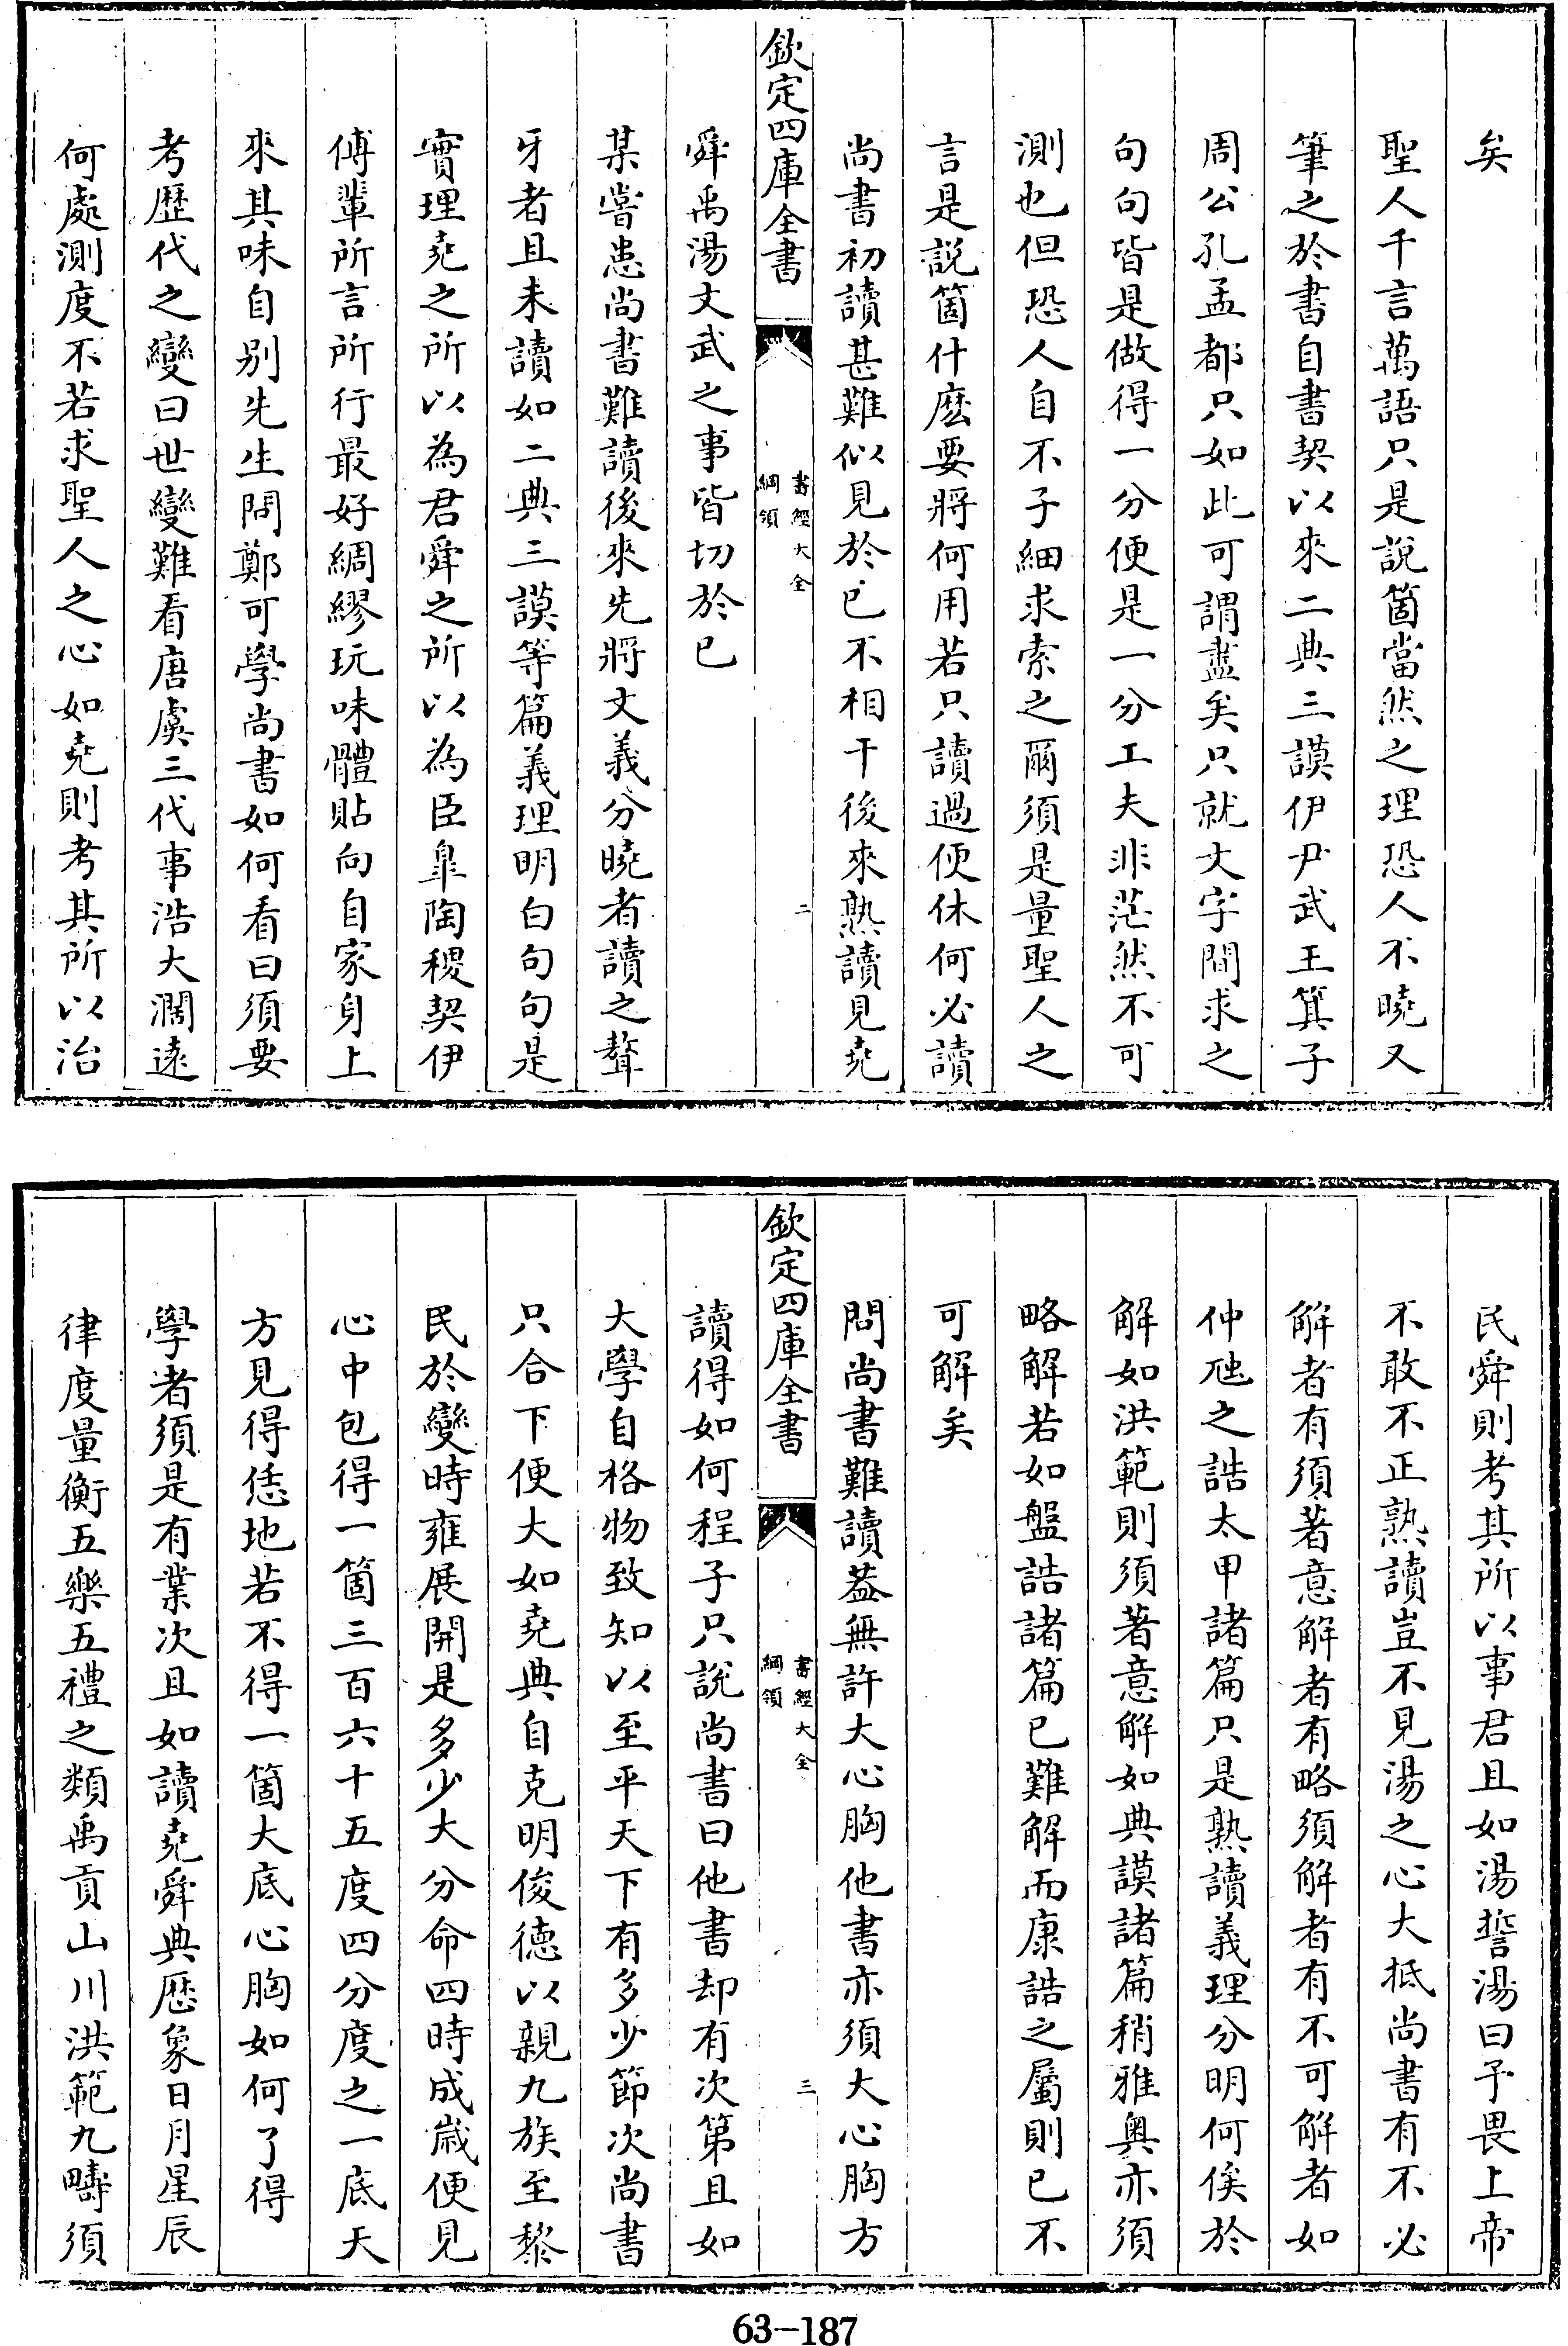 矣
聖人千言萬語只是說箇當然之理恐人不曉又
筆之於書自書契以來二典三謨伊尹武王箕子
周公孔孟都只如此可謂盡矣只就文字間求之
句句皆是做得一分便是一分工夫非茫然不可
測也但恐人自不子細求索之爾須是量聖人之
言是説箇什麽要將何用若只讀過便休何必讀
尚書初讀甚難似見於已不相干後來熟讀見堯
欽定四庫全書
書經大全
綱領
二
舜禹湯文武之事皆切於已
某嘗患尚書難讀後來先將文義分曉者讀之聱
牙者且未讀如二典三謨等篇義理明白句句是
實理堯之所以為君舜之所以為臣臯陶稷契伊
傅輩所言所行最好綢繆玩味體貼向自家身上
來其味自别先生問鄭可學尚書如何看曰須要
考歷代之變曰世變難看唐虞三代事浩大濶遠
何處測度不若求聖人之心如堯則考其所以治
民舜則考其所以事君且如湯誓湯曰予畏上帝
不敢不正熟讀豈不見湯之心大抵尚書有不必
解者有須著意解者有略須解者有不可解者如
仲虺之誥太甲諸篇只是熟讀義理分明何俟於
解如洪範則須著意解如典謨諸篇稍雅奥亦須
略解若如盤誥諸篇已難解而康誥之屬則已不
可解矣
問尚書難讀葢無許大心胸他書亦須大心胸方
欽定四庫全書
書經大全
綱領
三
讀得如何程子只說尚書曰他書却有次第且如
大學自格物致知以至平天下有多少節次尚書
只合下便大如堯典自克明俊德以親九族至黎
民於變時雍展開是多少大分命四時成歲便見
心中包得一箇三百六十五度四分度之一底天
方見得恁地若不得一箇大底心胸如何了得
學者須是有業次且如讀堯舜典歴象日月星辰
律度量衡五樂五禮之類禹貢山川洪範九疇須
63-187